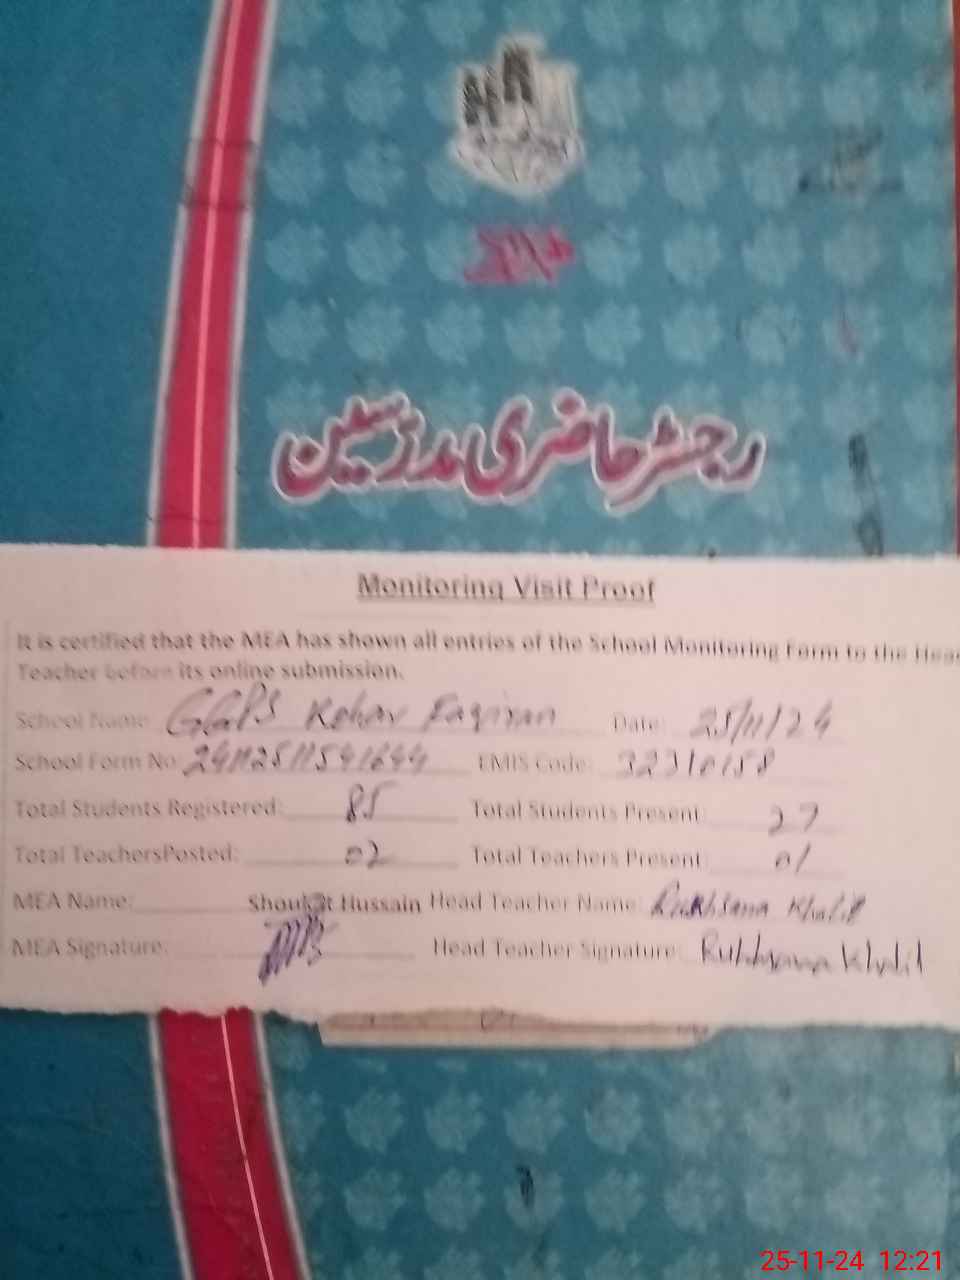 رجسٹر حاضری مدرسین
Monitoring Visit Proof
It is certified that the MEA has shown all entries of the School Monitoring Form to the Head
Teacher before its online submission.
School Name: GGPS Kehar Faqiran Date: 25/11/24
School Form No: 24112511541644 EMIS Code: 32310158
Total Students Registered: 85 Total Students Present: 27
Total TeachersPosted: 02 Total Teachers Present: 01
MEA Name: Shoukat Hussain Head Teacher Name: Rukhsana Khalil
MEA Signature: Head Teacher Signature: Rukhsana Khalil
25-11-24 12:21